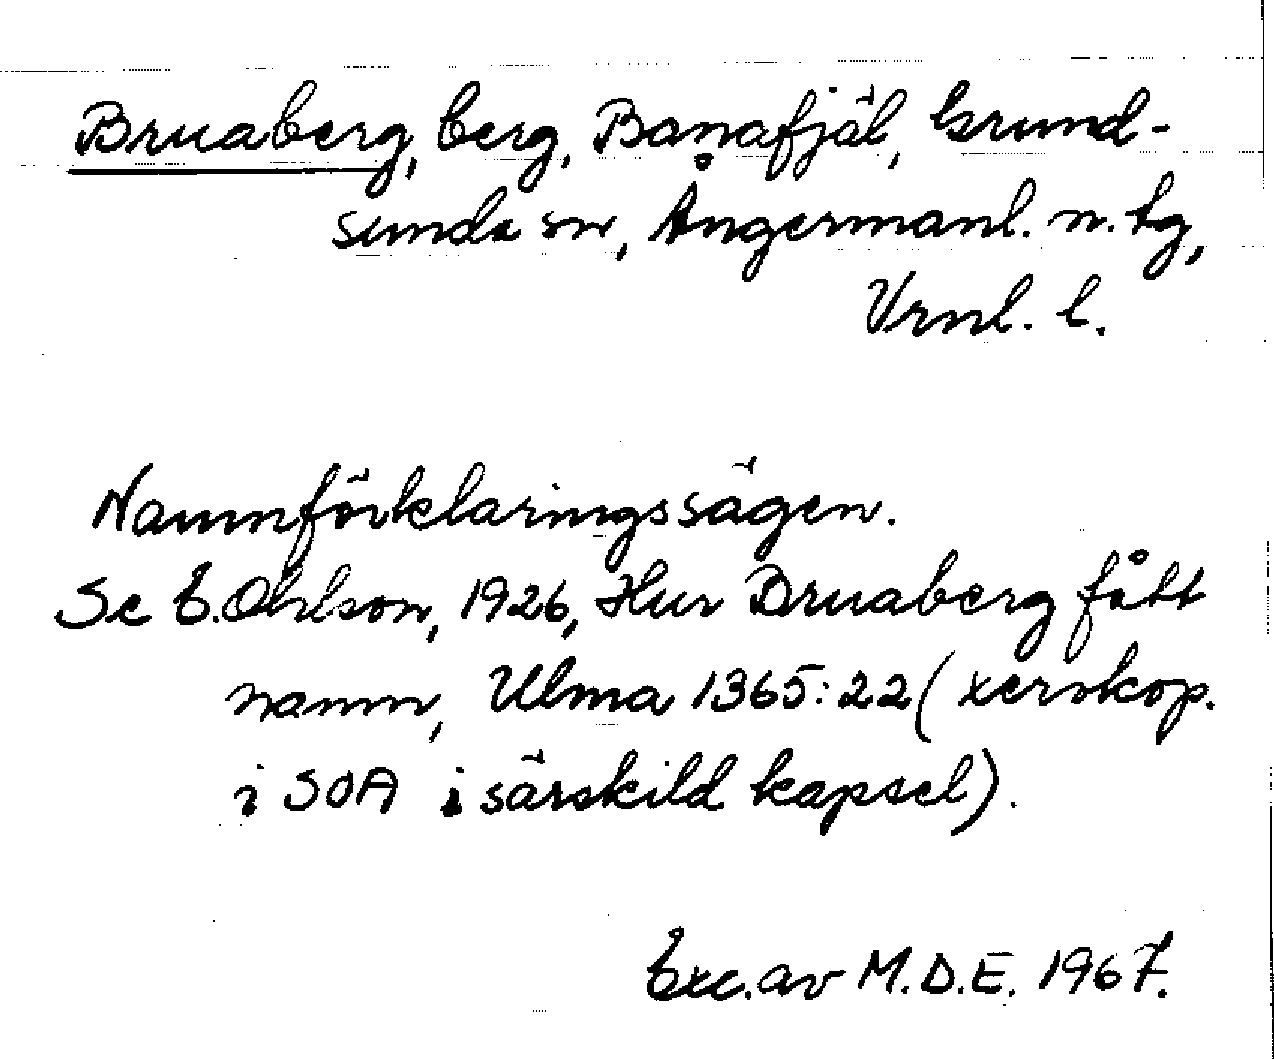 Bruaberg, berg, Banafjäl, Grund-
sunda sn, Ångermanl. n. tg,
Vrnl. l.
Namnförklaringssägen.
Se E. Ohlson, 1926, Hur Bruaberg fått
namn, Ulma 1365:22 (xeroxkop.
i SOA i särskild kapsel).
Exc. av M.D.E. 1967.